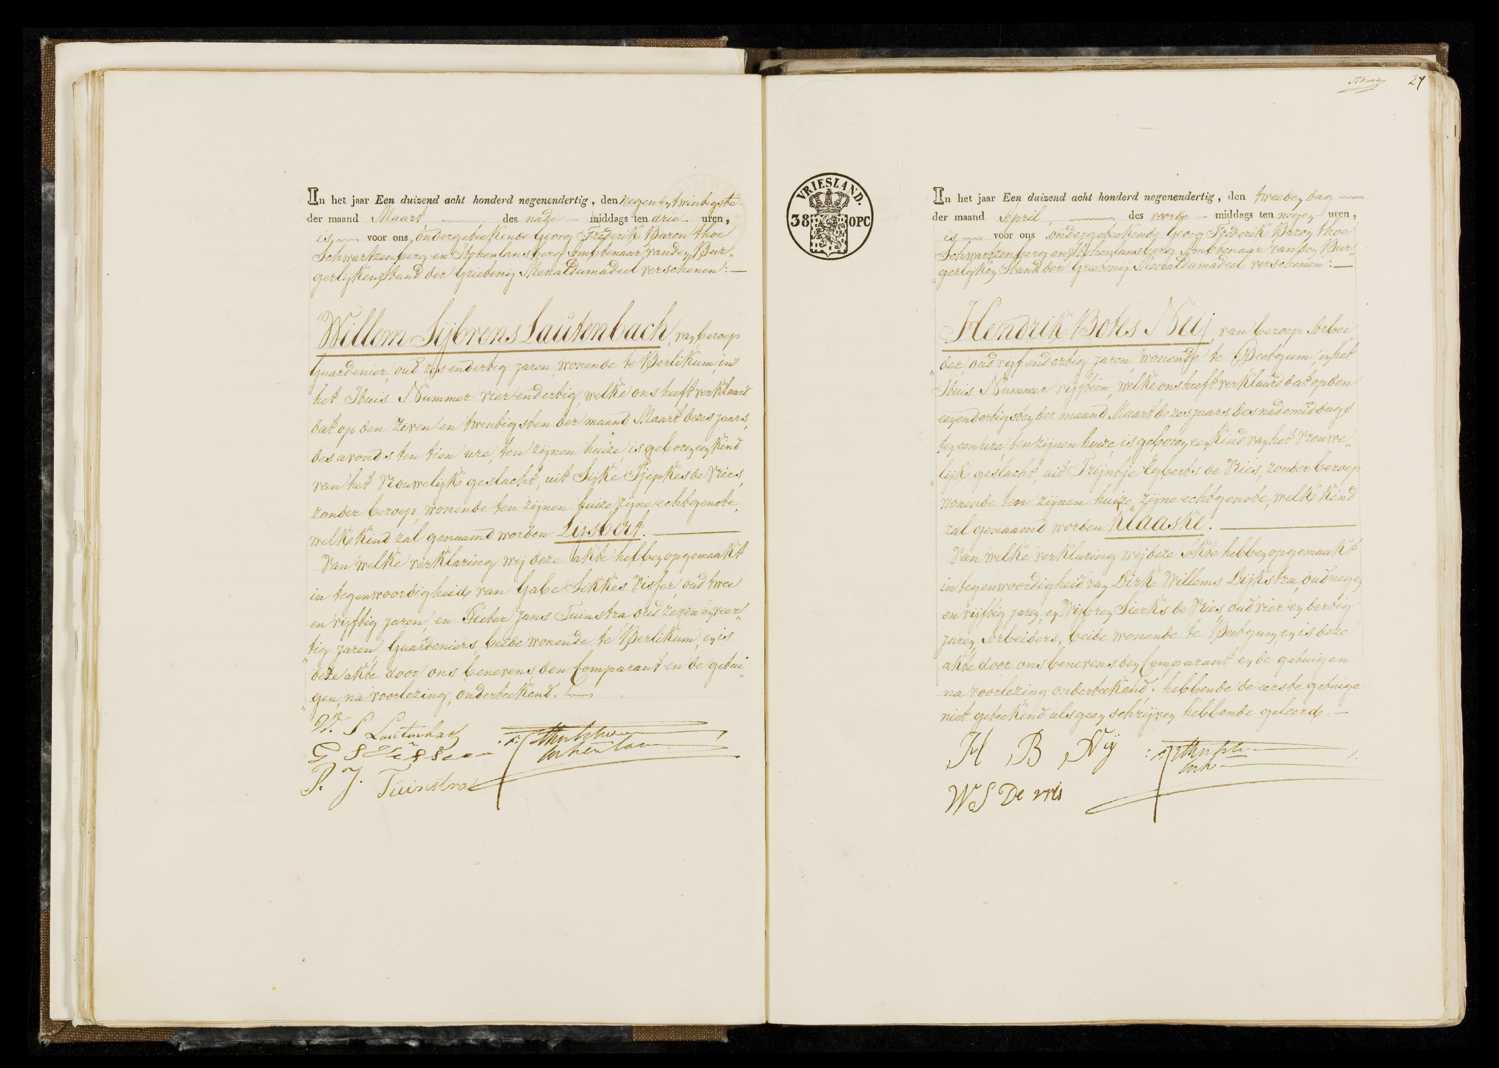 In het jaar Een duizend acht honderd negenendertig, den negen en twintigste
der maand Maart des nade middags ten drie uren,
is voor ons, ondergeteekende Georg Frederik Baron thoe
Schwartzenberg en Hohenlansberg Ambtenaar van den Bur-
gerlyken stand der Grieteny Menaldumadeel verschenen:
Willem Sijbrens Lautenbach, van beroep
Guardenier, oud zes en dertig jaren, wonende te Berlikum in
het Huis Nummer vier en dertig, welke ons heeft verklaard
dat op den zeven en twintigsten der maand Maart dezes jaars,
des avonds ten tien ure, ten zijnen huize is geboren een kind
van het Vrouwelyke geslacht, uit Sijke Sjipkes de Vries,
zonder beroep, wonende ten zijnen huize, zijne echtgenoote,
welk kind zal genaamd worden Liesbert.
Van welke verklaring wij deze akte hebben opgemaakt
in tegenwoordigheid van Gabe Sikkes Visser, oud twee
en vyftig jaren, en Pieter Jans Tuinstra oud zeven en veer-
tig jaren, Guardeniers, beide wonende te Berlikum, en is
deze akte door ons benevens den Comparant en de getui-
gen, na voorlezing, onderteekend.
W. S Lautenbach
G S Visser
P. J. Tuinstra
27
VRIESLAND.
38 OPC
In het jaar Een duizend acht honderd negenendertig, den tweeden dag
der maand April des voorde middags ten negen uren,
is voor ons ondergeteekende Georg Frederik Baron thoe
Schwartzenberg en Hohenlansberg Ambtenaar van den Bur-
gerlyken Stand der Grieteny Menaldumadeel verschenen:
Hendrik Botes Neij, van beroep Arbei-
der, oud vyf en dertig jaren wonende te Beetgum in het
Huis Nummer vyftien, welke ons heeft verklaard dat op den
een en dertigsten der maand Maart dezes jaars des nademiddags
ten een ure ten zijnen huize, is geboren een kind van het Vrouwe-
lijk geslacht, uit Trijntje Egberts de Vries, zonder beroep
wonende ten zijnen huize, zijne echtgenoote, welk kind
zal genaamd worden Klaaske.
Van welke verklaring wij deze akte hebben opgemaakt
in tegenwoordigheid van Dirk Willems Dijkstra, oud negen
en vijftig jaren, en Wytzen Sierks de Vries oud vier en dertig
jaren, Arbeiders, beide wonende te Beetgum, en is deze
akte door ons benevens den Comparant en de getuigen
na voorlezing onderteekend, hebbende de eerste getuige
niet geteekend als geen schrijven hebbende geleerd.
H B Nij
W S De vries